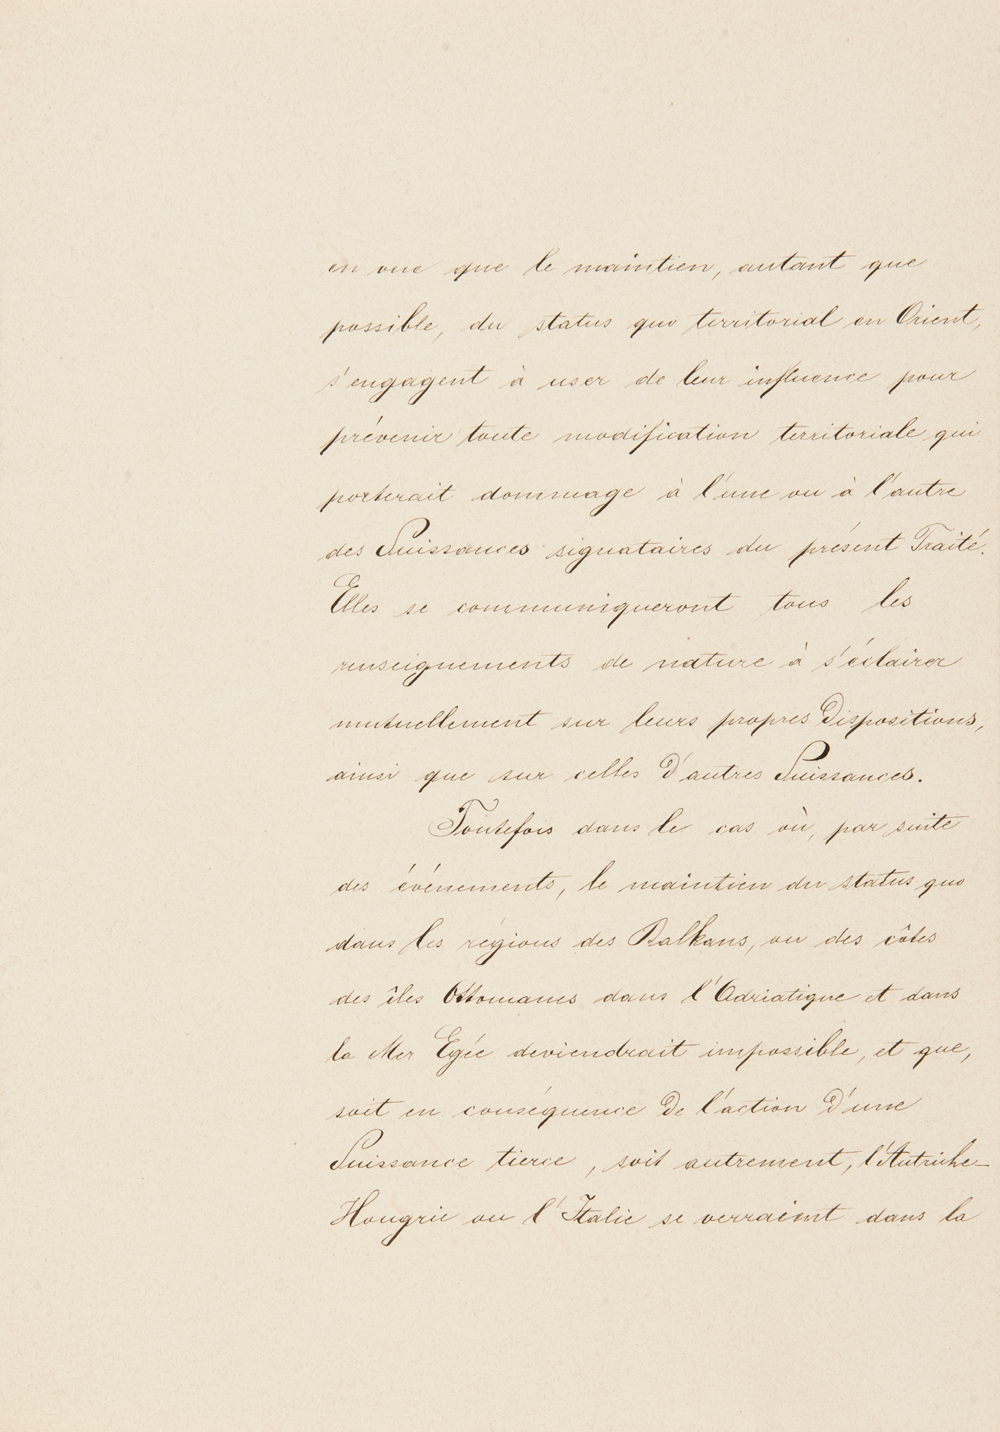 en vue que le maintien, autant que
possible, du status quo territorial en Orient,
s'engagent à user de leur influence pour
prévenir toute modification territoriale qui
porterait dommage à l'une ou à l'autre
des Puissances signataires du présent Traité.
Elles se communiqueront tous les
renseignements de nature à s'éclairer
mutuellement sur leurs propres dispositions,
ainsi que sur celles d'autres Puissances.
Toutefois dans le cas où, par suite
des événements, le maintien du status quo
dans les régions des Balkans, ou des côtes
des îles Ottomanes dans l'Adriatique et dans
la Mer Egée deviendrait impossible, et que,
soit en conséquence de l'action d'une
Puissance tierce, soit autrement, l'Autriche-
Hongrie ou l'Italie se verraient dans la